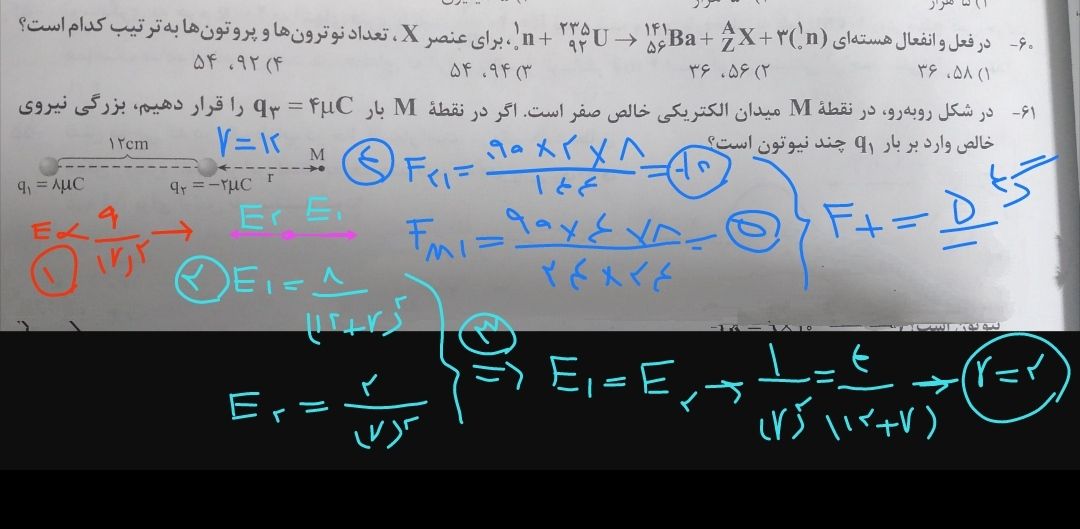 ۶۰- در فعل و انفعال هسته‌ای ¹₀n + ²³⁵₉₂U → ¹⁴¹₅₆Ba + ᴬ_ZX + ۳(¹₀n)، برای عنصر X، تعداد نوترون‌ها و پروتون‌ها به‌ترتیب کدام است؟
۱) ۵۸، ۳۶ ۲) ۵۶، ۳۶ ۳) ۹۴، ۵۴ ۴) ۹۲، ۵۴
۶۱- در شکل روبه‌رو، در نقطهٔ M میدان الکتریکی خالص صفر است. اگر در نقطهٔ M بار q₃ = ۴μC را قرار دهیم، بزرگی نیروی
خالص وارد بر بار q₁ چند نیوتون است؟
۱۲cm
r = ۱۲
M
r
q₁ = ۸μC
q₂ = −۲μC
E₂ E₁
E ∝ q/(r)² →
۱
۲ E₁ = ۸/(۱۲+r)²
E₂ = ۲/(r)²
۳ ⇒ E₁ = E₂ → ۱/(r)² = ۴/(۱۲+r) → r = ۲
۴ F₂₁ = ۹۰×۲×۸/۱۴۴ =
F_M1 = ۹۰×۴×۸/۲۴×۲۴ = ۵